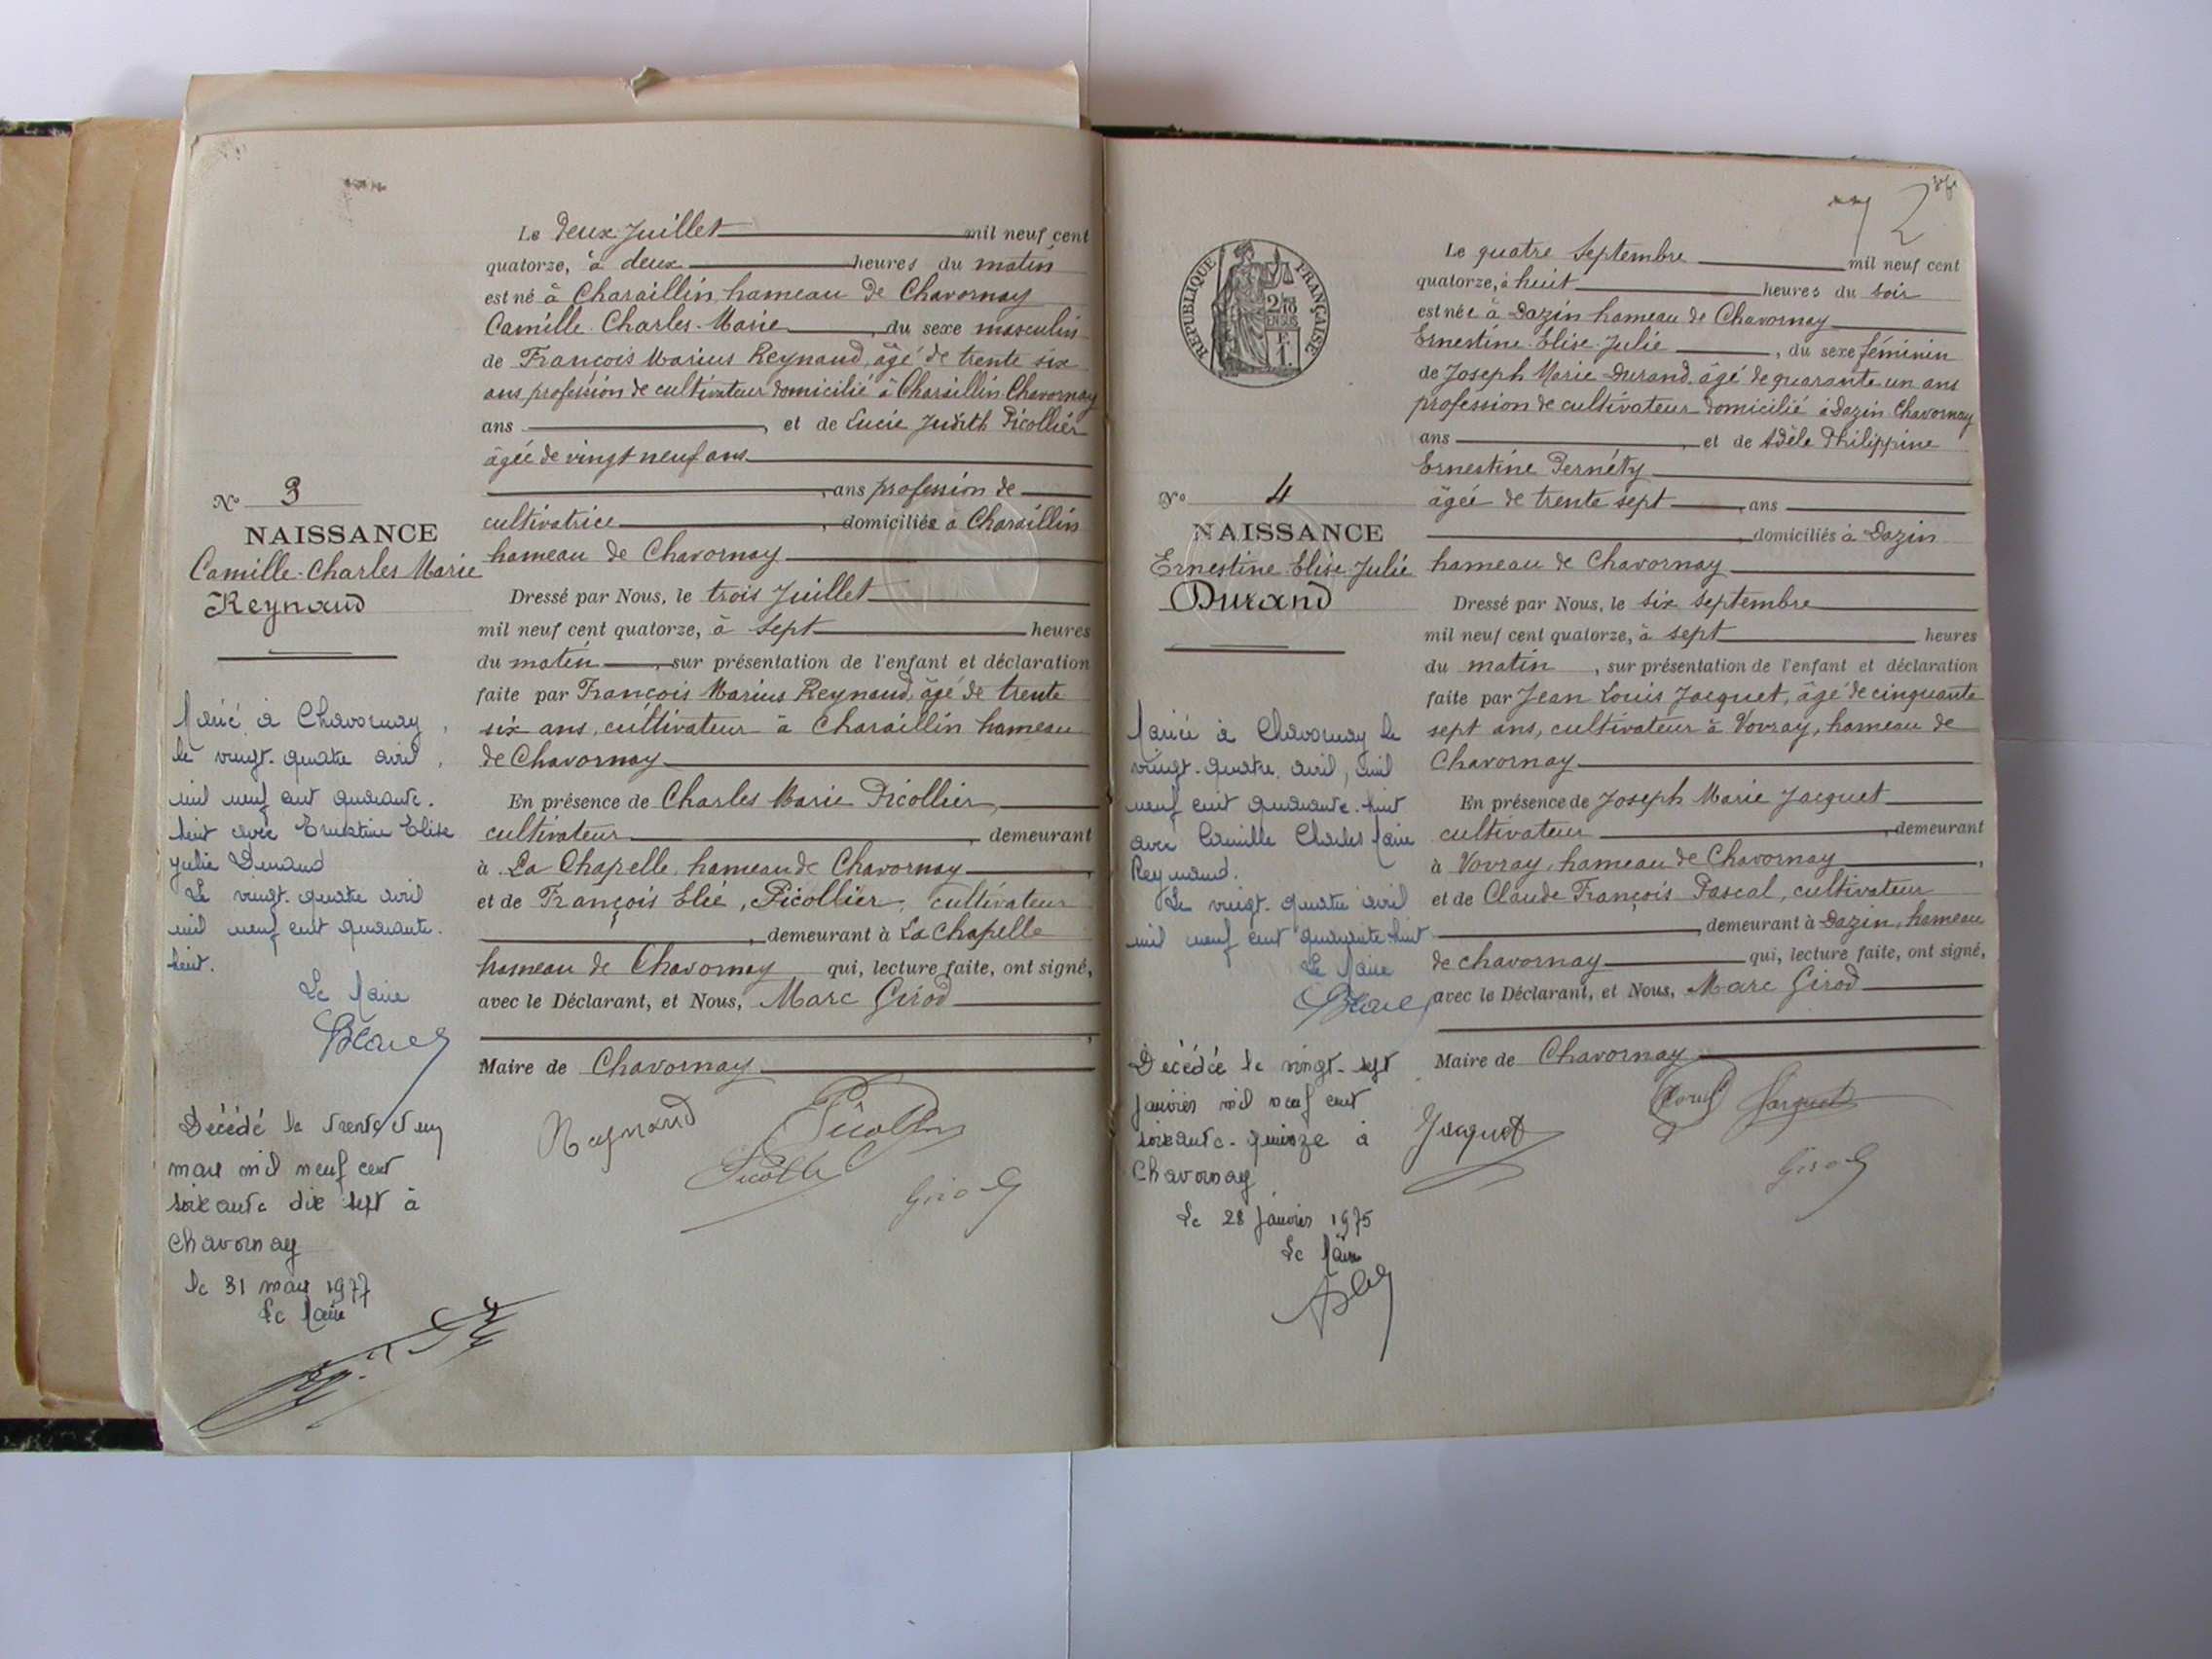 Le deux Juillet mil neuf cent
quatorze, à deux heures du matin
est né à Charaillin, hameau de Chavornay
Camille Charles Marie, du sexe masculin
de François Marius Reynaud, âgé de trente six
ans profession de cultivateur domicilié à Charaillin Chavornay
ans, et de Lucie Judith Picollier
âgée de vingt neuf ans
, ans profession de
cultivatrice, domiciliée à Charaillin
hameau de Chavornay
Dressé par Nous, le trois Juillet
mil neuf cent quatorze, à sept heures
du matin, sur présentation de l'enfant et déclaration
faite par François Marius Reynaud, âgé de trente
six ans, cultivateur à Charaillin hameau
de Chavornay
En présence de Charles Marie Picollier,
cultivateur, demeurant
à La Chapelle, hameau de Chavornay,
et de François Elie, Picollier, cultivateur
, demeurant à La Chapelle
hameau de Chavornay qui, lecture faite, ont signé,
avec le Déclarant, et Nous, Marc Girod
Maire de Chavornay
Reynaud
Girod
No 3
NAISSANCE
Camille Charles Marie
Reynaud
Marié à Chavornay,
le vingt-quatre avril,
mil neuf cent quarante-
huit avec Ernestine Elise
Julie Durand
Le vingt-quatre avril
mil neuf cent quarante-
huit.
Le Maire
Décédé le trente et un
mars mil neuf cent
soixante dix sept à
Chavornay
le 31 mars 1977
Le Maire
2
RÉPUBLIQUE FRANÇAISE
2/10
EN SUS
F.
1.
Le quatre Septembre mil neuf cent
quatorze, à huit heures du soir
est née à Dazin hameau de Chavornay
Ernestine Elise Julie, du sexe féminin
de Joseph Marie Durand, âgé de quarante un ans
profession de cultivateur domicilié à Dazin Chavornay
ans, et de Adèle Philippine
Ernestine Pernéty
âgée de trente sept ans
, domiciliés à Dazin
hameau de Chavornay
Dressé par Nous, le six septembre
mil neuf cent quatorze, à sept heures
du matin, sur présentation de l'enfant et déclaration
faite par Jean Louis Jacquet, âgé de cinquante
sept ans, cultivateur à Vovray, hameau de
Chavornay
En présence de Joseph Marie Jacquet
cultivateur, demeurant
à Vovray, hameau de Chavornay,
et de Claude François Pascal, cultivateur
, demeurant à Dazin, hameau
de Chavornay qui, lecture faite, ont signé,
avec le Déclarant, et Nous, Marc Girod
Maire de Chavornay
Jacquet
Jacquet
Girod
No 4
NAISSANCE
Ernestine Elise Julie
Durand
Mariée à Chavornay le
vingt-quatre avril, mil
neuf cent quarante-huit
avec Camille Charles Marie
Reynaud.
Le vingt-quatre avril
mil neuf cent quarante huit
Le Maire
Décédée le vingt-sept
janvier mil neuf cent
soixante-quinze à
Chavornay
Le 28 janvier 1975
Le Maire